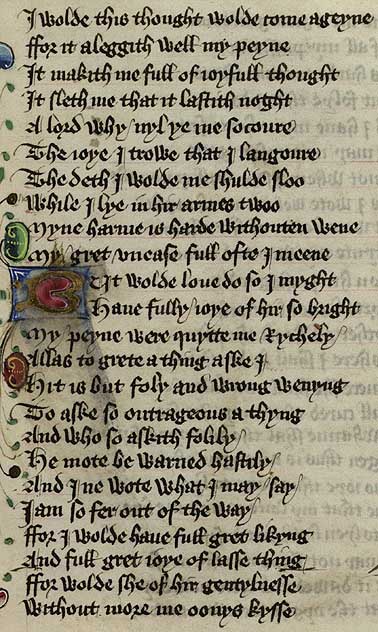 I wolde this thought wolde come ageyne
ffor it aleggith well my peyne
It makith me full of ioyfull thought
It sleth me that it lastith noght
A lord why nyl ye me socoure
The ioye I trowe that I langoure
The deth I wolde me shulde sloo
While I lye in hir armes twoo
Myne harme is harde withouten wene
My gret vnease full ofte I meene
But wolde love do so I myght
Haue fully ioye of hir so bright
My peyne were quytte me Rychely
Allas to grete a thing aske I
Hit is but foly and wrong wenyng
To aske so outrageous a thyng
And who so askith folily
He mote be warned hastily
And I ne wote what I may say
I am so fer out of the way
ffor I wolde haue full gret likyng
And full gret ioye of lasse thing
ffor wolde she of hir gentylnesse
Without more me oonys kysse